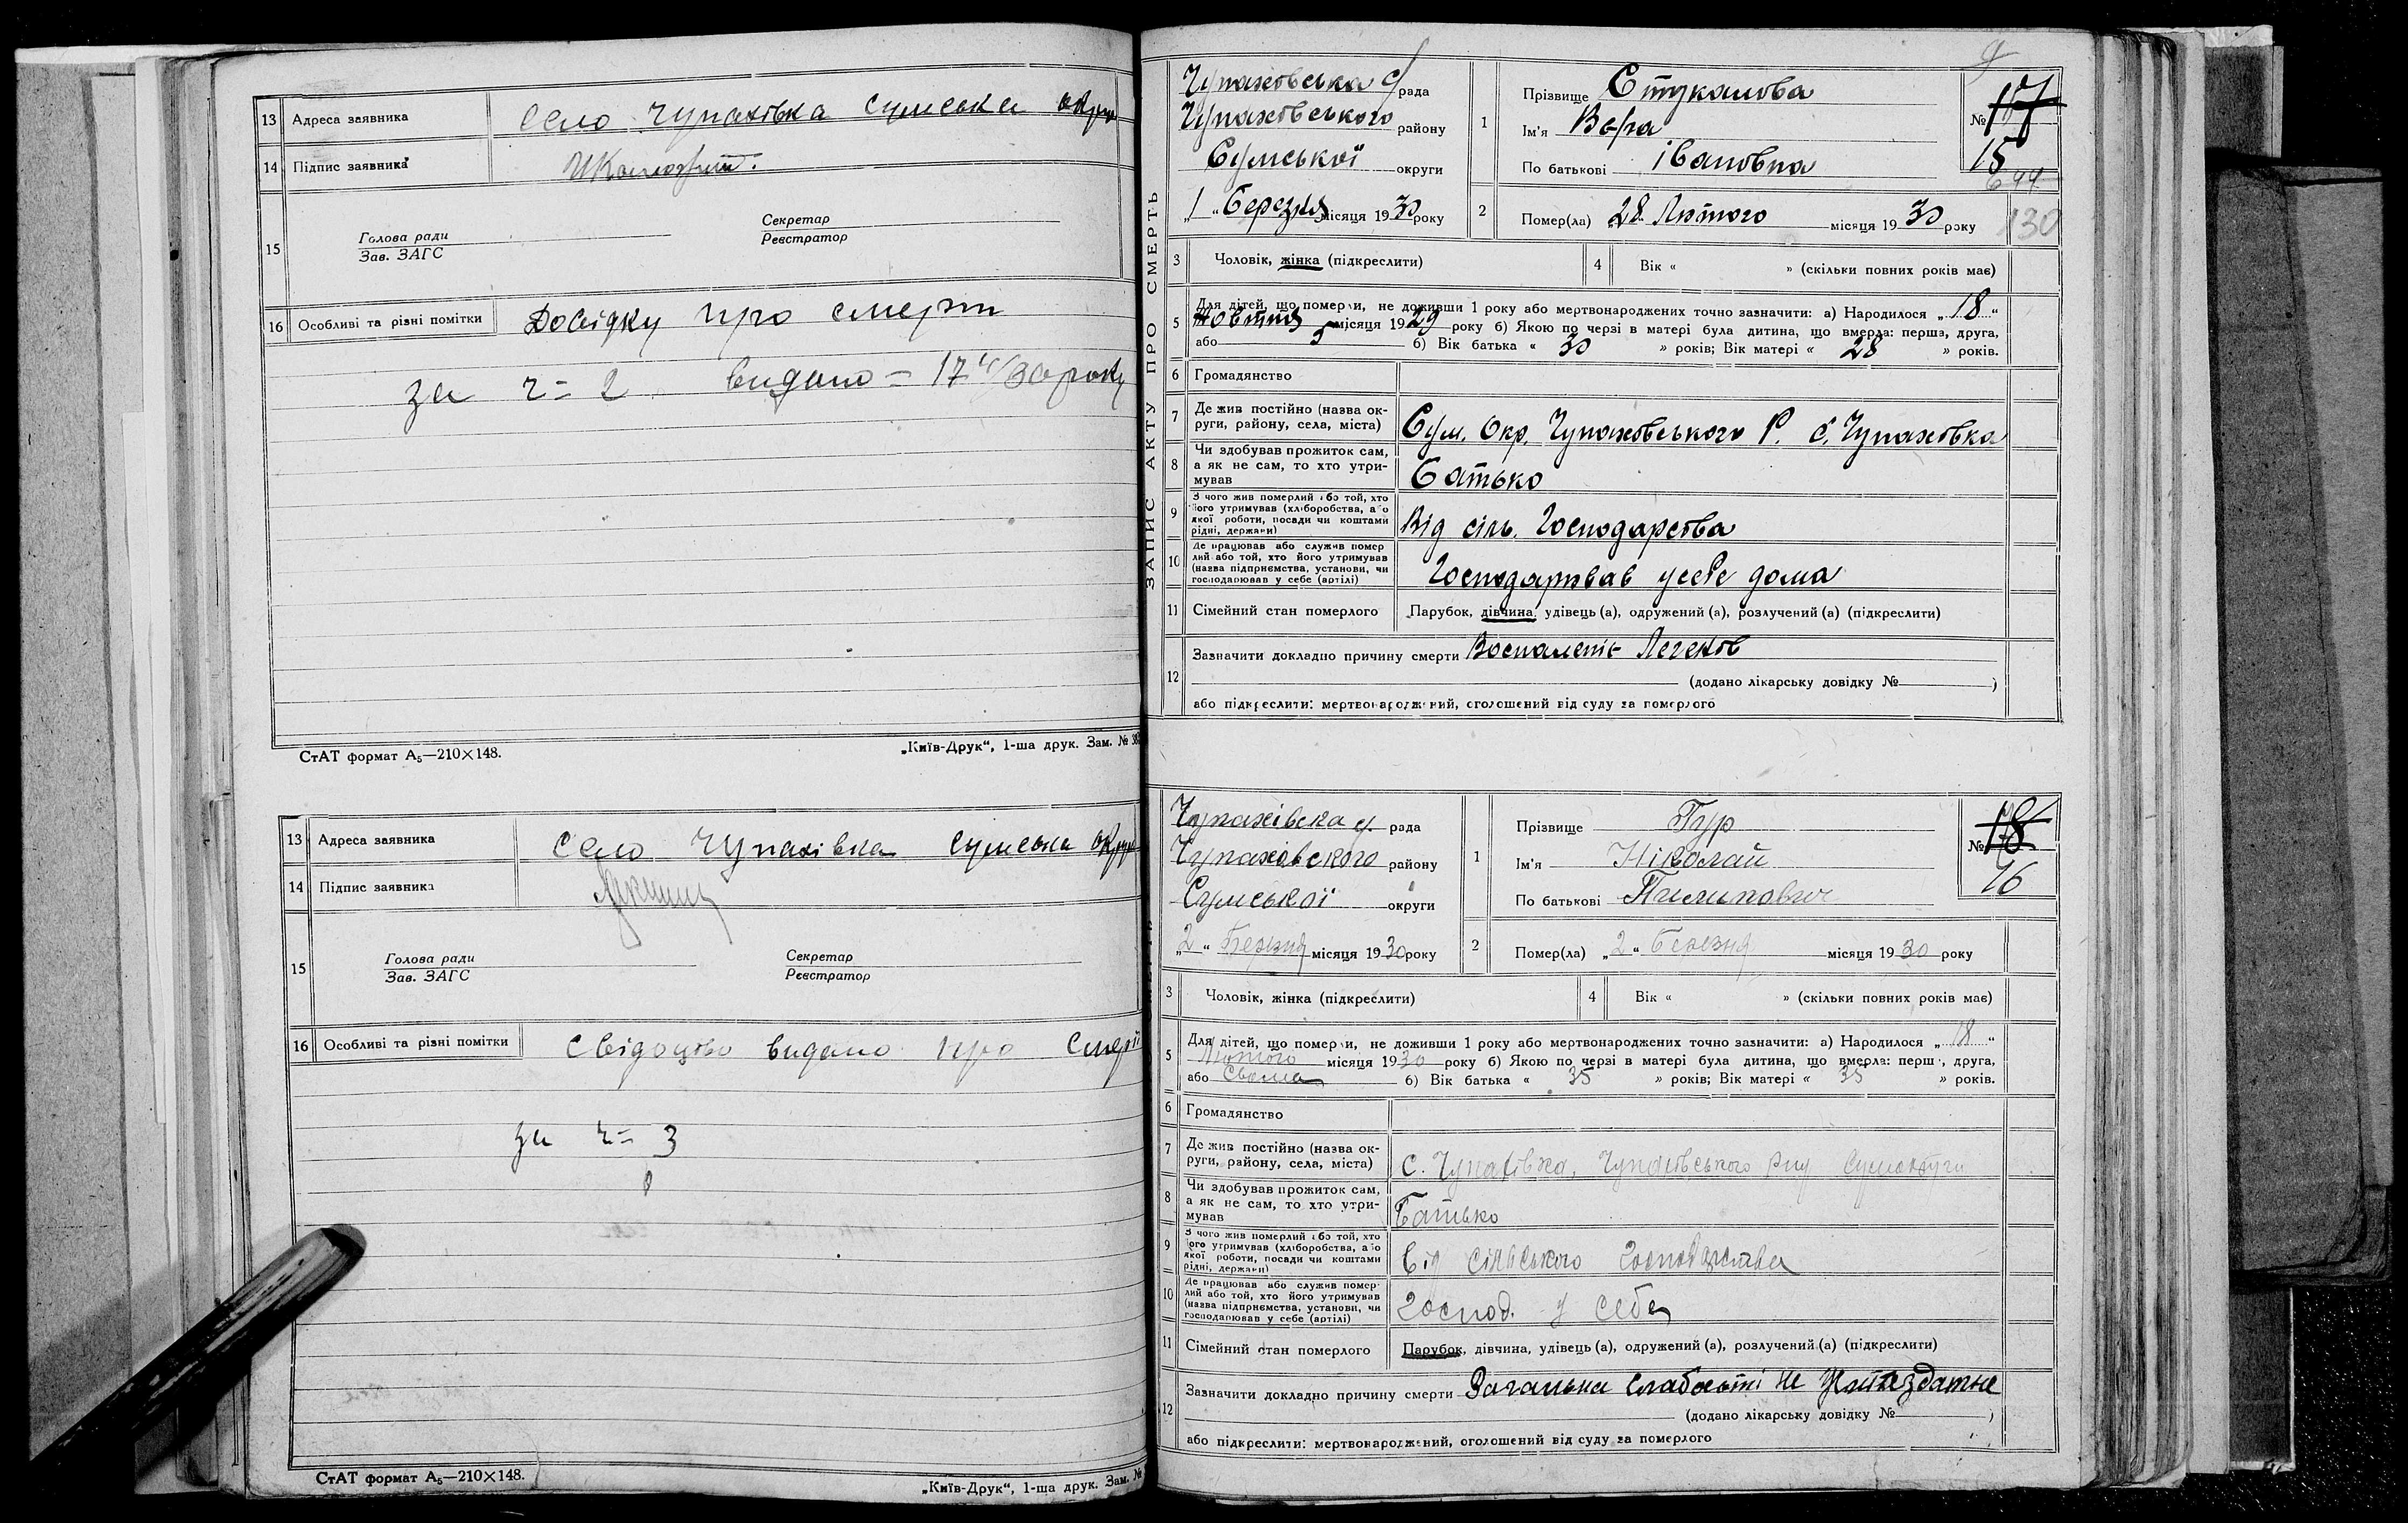 13 Адреса заявника село Чупахівка Сумська окру
14 Підпис заявника
15 Голова ради Секретар
Зав. ЗАГС Реєстратор
16 Особливі та різні помітки Довідку про смерт
за ч= 2 видано = 17 /30 року
СтАТ формат А5—210×148. „Київ-Друк“, 1-ша друк. Зам. №
13 Адреса заявника село Чупахівка Сумська окру
14 Підпис заявника
15 Голова ради Секретар
Зав. ЗАГС Реєстратор
16 Особливі та різні помітки Свідоцтво видано про смерті
за ч= 3
СтАТ формат А5—210×148. „Київ-Друк“, 1-ша друк. Зам. №
ЗАПИС АКТУ ПРО СМЕРТЬ
Чупаховська с рада
Чупаховського району
Сумської округи
„1“ Березня місяця 1930 року
1 Прізвище Стукалова
Ім'я Вера
По батькові івановна
№ 17
15
644
130
2 Помер(ла) „28 Лютого місяця 1930 року
3 Чоловік, жінка (підкреслити) 4 Вік « » (скільки повних років має)
5 Для дітей, що померли, не доживши 1 року або мертвонароджених точно зазначити: а) Народилося „18“
Жовтня місяця 1929 року б) Якою по черзі в матері була дитина, що вмерла: перша, друга,
або 5 б) Вік батька « 30 » років; Вік матері « 28 » років.
6 Громадянство
7 Де жив постійно (назва ок-
руги, району, села, міста) Сум. Окр. Чупаховського Р. С. Чупаховка
8 Чи здобував прожиток сам,
а як не сам, то хто утри-
мував Батько
9 З чого жив померлий або той, хто
його утримував (хліборобства, або
якої роботи, посади чи коштами
рідні, держави) Від сіль. Господарства
10 Де працював або служив помер
лий або той, хто його утримував
(назва підприємства, установи, чи
господарював у себе (артілі) Господарював у себе дома
11 Сімейний стан померлого Парубок, дівчина, удівець (а), одружений (а), розлучений (а) (підкреслити)
12 Зазначити докладно причину смерти Воспаленіє Легеков
(додано лікарську довідку № )
або підкреслити: мертвонароджений, оголошений від суду за померлого
Чупахівска с. рада
Чупаховского району
Сумської округи
„2“ Березня місяця 1930 року
1 Прізвище Гур
Ім'я Ніколай
По батькові Пилипович
№ 18
16
2 Помер(ла) „2“ Березня місяця 1930 року
3 Чоловік, жінка (підкреслити) 4 Вік « » (скільки повних років має)
5 Для дітей, що померли, не доживши 1 року або мертвонароджених точно зазначити: а) Народилося „18“
Лютого місяця 1930 року б) Якою по черзі в матері була дитина, що вмерла: перша, друга,
або Сьома б) Вік батька « 35 » років; Вік матері « 35 » років.
6 Громадянство
7 Де жив постійно (назва ок-
руги, району, села, міста) с. Чупахівка, Чупахівського р-ну
8 Чи здобував прожиток сам,
а як не сам, то хто утри-
мував Батько
9 З чого жив померлий або той, хто
його утримував (хліборобства, або
якої роботи, посади чи коштами
рідні, держави) Від сільського господарства
10 Де працював або служив помер-
лий або той, хто його утримував
(назва підприємства, установи, чи
господарював у себе (артілі) Господ. у себе
11 Сімейний стан померлого Парубок, дівчина, удівець (а), одружений (а), розлучений (а) (підкреслити)
12 Зазначити докладно причину смерти Загальна слабость не життєздатне
(додано лікарську довідку № )
або підкреслити: мертвонароджений, оголошений від суду за померлого